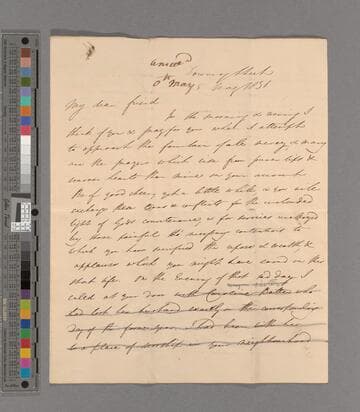 answd
May
Town of
May 1831
My dear friend
In the morning & evening I
think of you & pray for you when I attempt
to approach the fountain of all mercy & many
are the prayers which rise from purer lips &
warmer hearts than mine on your account.
Be of good cheer, yet a little while & you will
exchange these tears & conflicts for the unclouded
light of God's countenance, & for
by these painful & contentions to
which you have sacrificed the repose & wealth &
applauses which you might have saved in this
short life. On the Evening of that sad day I
called at your door with Caroline who
had lost her husband exactly on the
day of the former year. I had been with her
to a place of worship in your neighbourhood